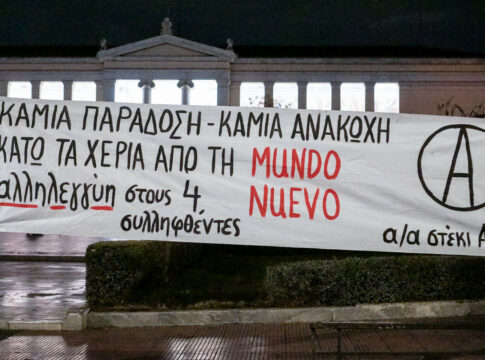 ΚΑΜΙΑ ΠΑΡΑΔΟΣΗ - ΚΑΜΙΑ ΑΝΑΚΩΧΗ
ΚΑΤΩ ΤΑ ΧΕΡΙΑ ΑΠΟ ΤΗ MUNDO NUEVO
αλληλεγγύη στους 4
συλληφθέντες
α/α στέκι
A